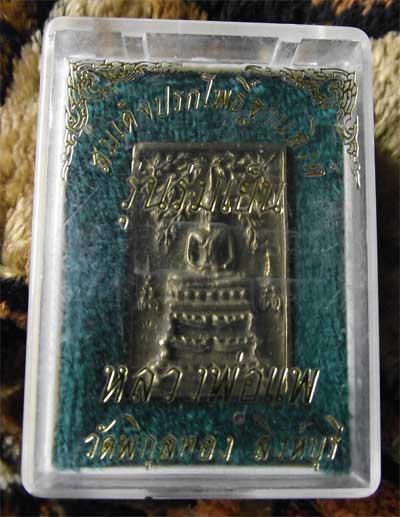 สมเด็จปรกโพธิ์ฐานสิงห์
รุ่นร่มเย็น
หลวงพ่อแพ
วัดพิกุลทอง สิงห์บุรี